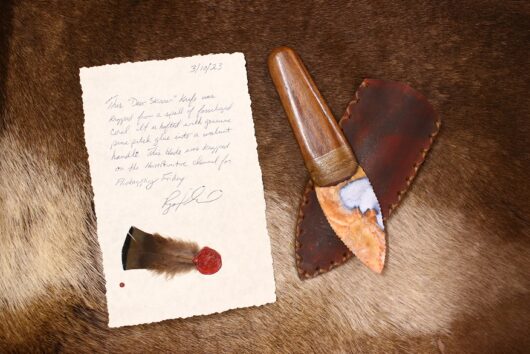 3/10/23
"This "Deer Skinner" knife was
knapped from a spall of fossilized
Coral. It is hafted with genuine
pine pitch glue into a walnut
handle. This blade was knapped
on the channel for
Friday